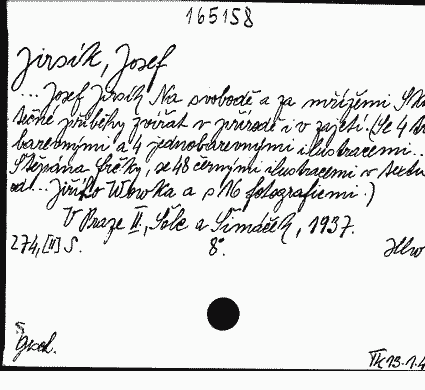 165158
Jirsík, Josef
... Josef Jirsík Na svobodě a za mřížemi Sku
tečné příběhy zvířat v přírodě i v zajetí. (Se 4 tr
barevnými a 4 jednobarevnými ilustracemi...
Štěpána, se 48 černými ilustracemi v textu
od... Jiřího Wowka a s 16 fotografiemi.)
V Praze II., Šolc a Šimáček, 1937.
274, [II] S. 8°.
13.1.4